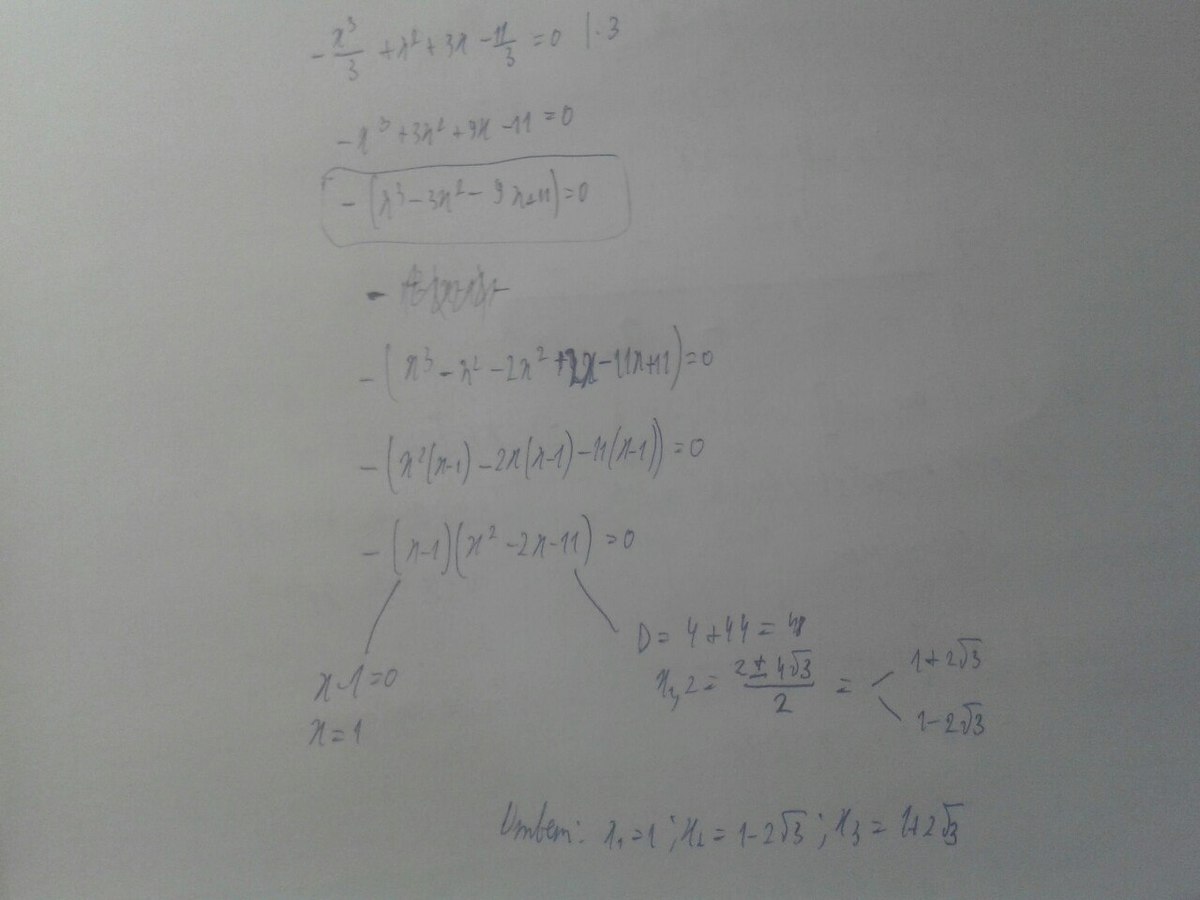 -x³/3 + x² + 3x - 11/3 = 0 | · 3
-x³ + 3x² + 9x - 11 = 0
-(x³ - 3x² - 9x + 11) = 0
-
-(x³ - x² - 2x² + 2x - 11x + 11) = 0
-(x²(x-1) - 2x(x-1) - 11(x-1)) = 0
-(x-1)(x² - 2x - 11) = 0
x-1=0
x=1
D = 4 + 44 = 48
x₁,₂ = (2 ± 4√3)/2 =
1+2√3
1-2√3
Ombem: x₁ = 1 ; x₂ = 1 - 2√3 ; x₃ = 1+2√3